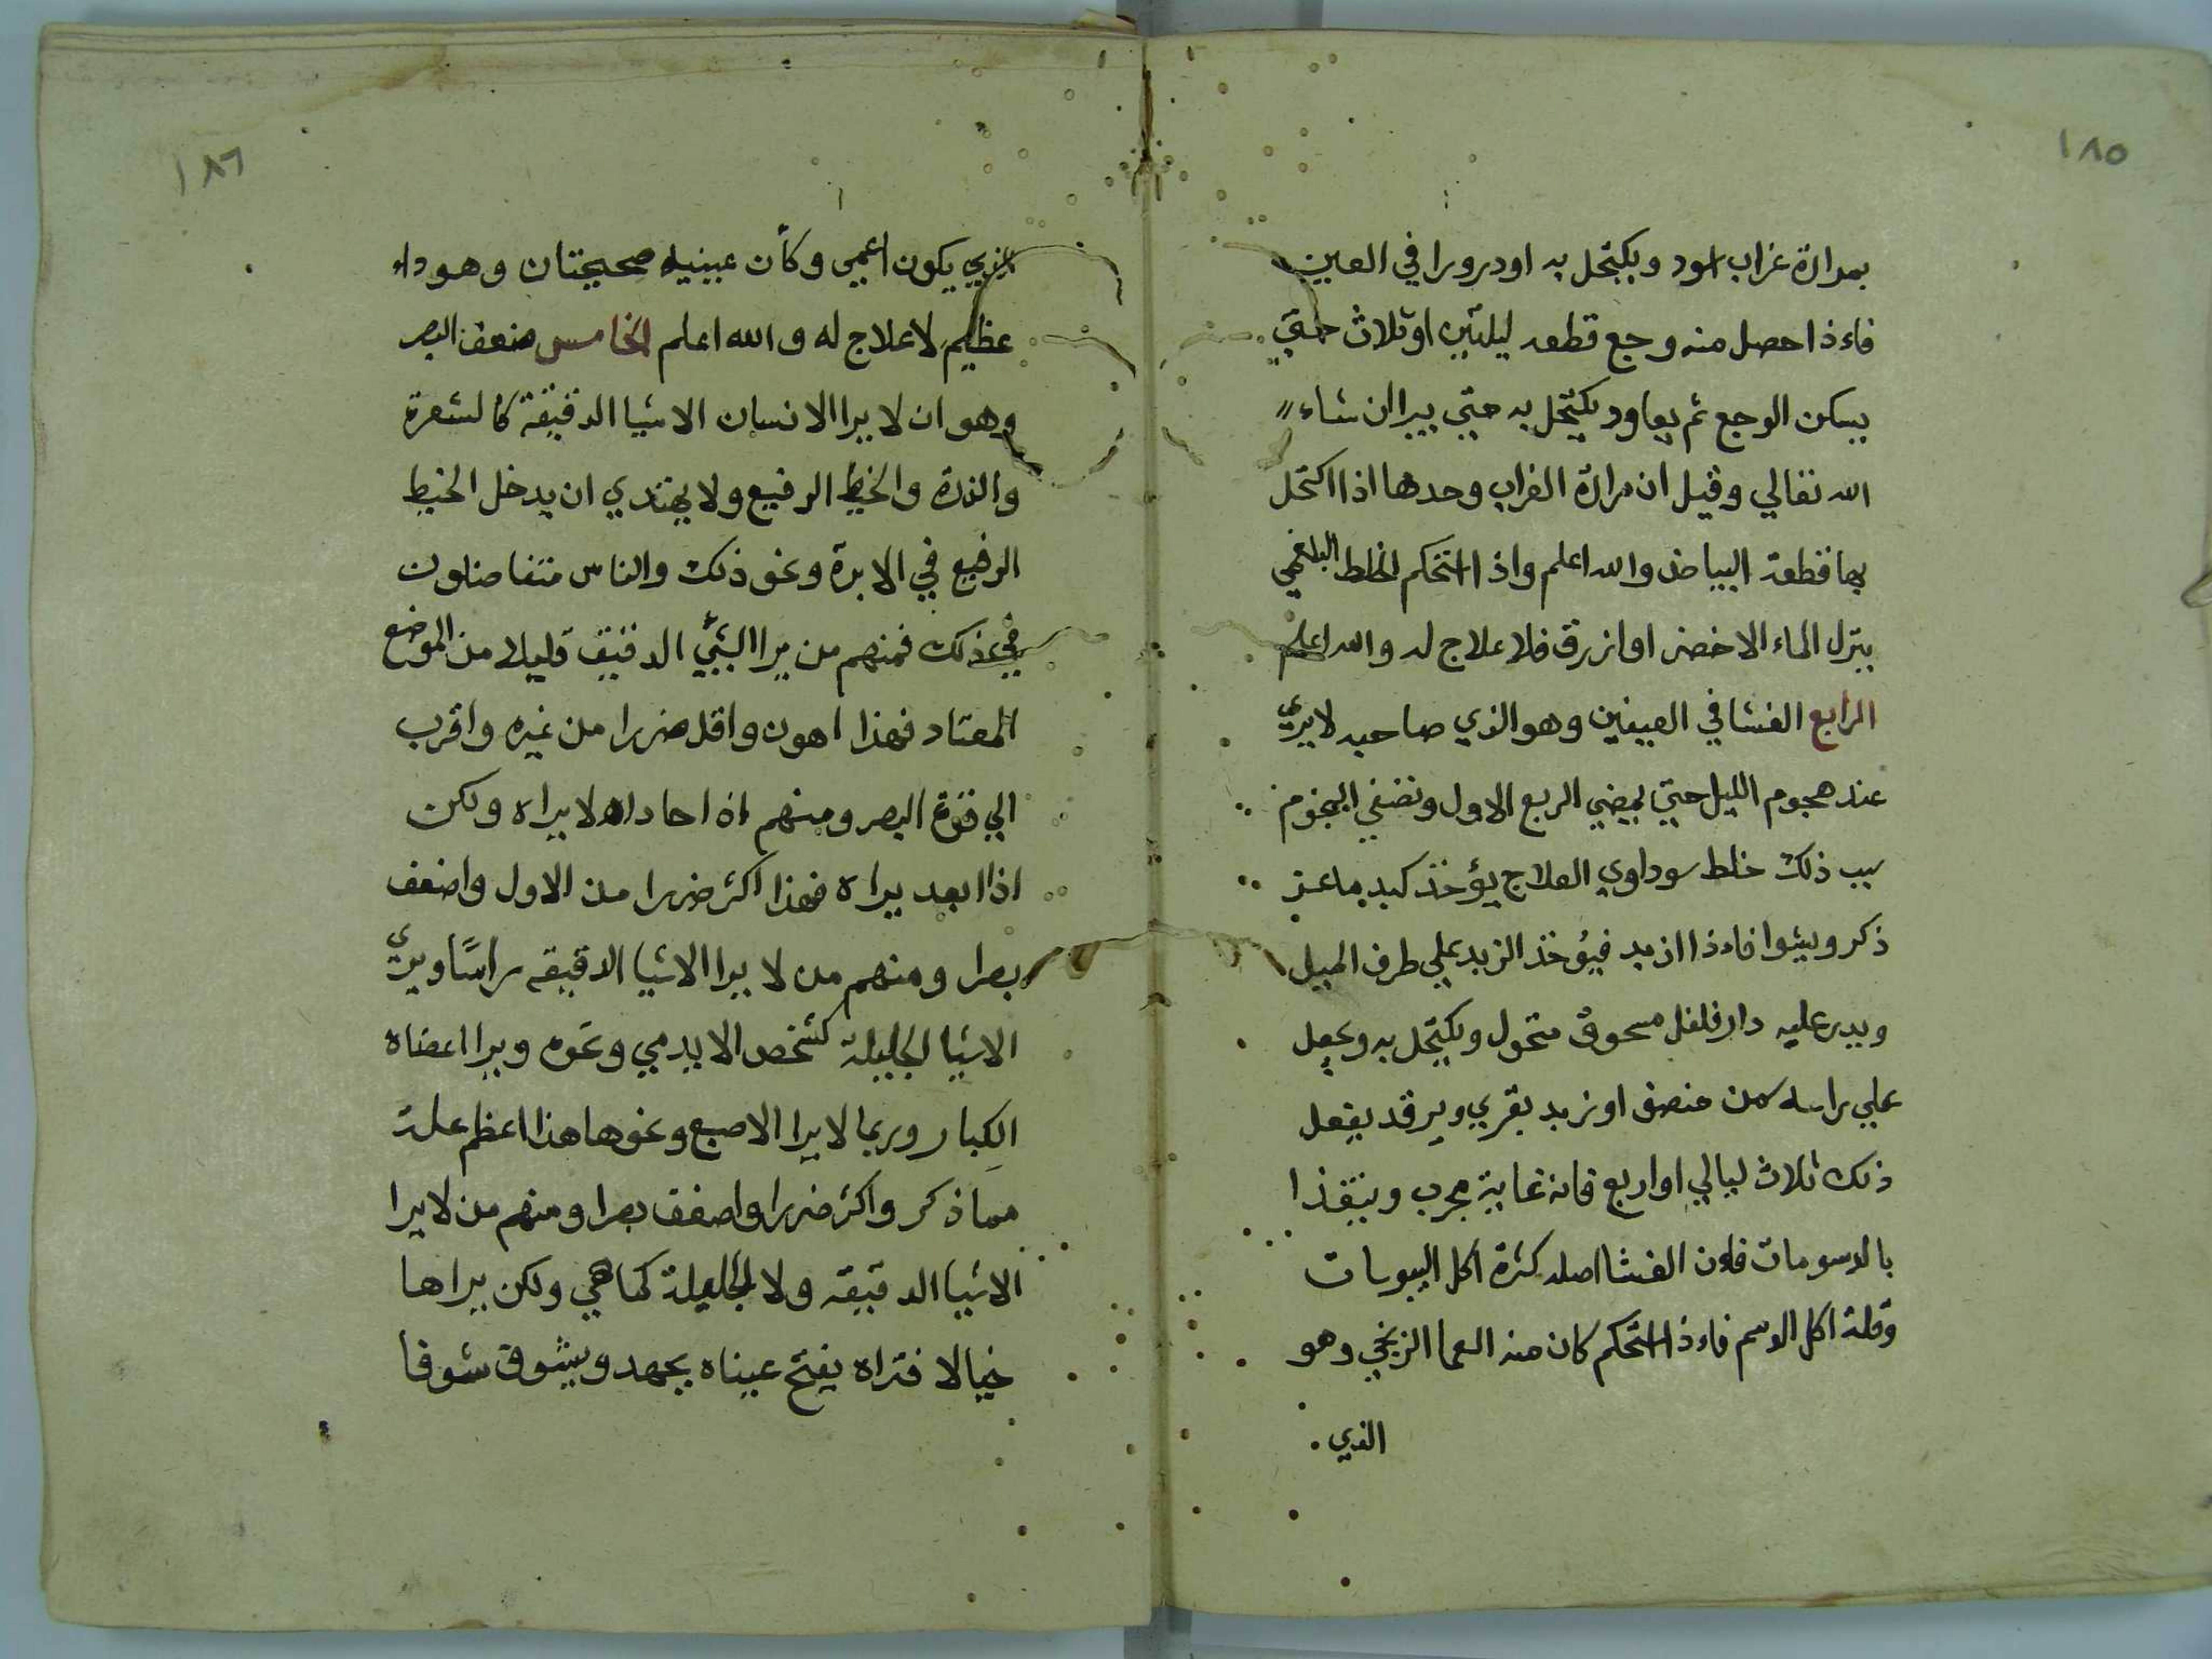 ١٨٥
بمرارة غراب اسود ويكتحل به او درورا في العين
فاءذا حصل منه وجع قطعه ليلتين او ثلاث حتي
يسكن الوجع ثم يعاود يكتحل به حتي يبرا ان شاء
الله تعالي وقيل ان مرارة الغراب وحدها اذا اكتحل
بها قطعة البياض والله اعلم واذا استحكم الخلط البلغمي
ينزل الماء الاخضر او ازرق فلا علاج له والله اعلم
الرابع الغشا في العينين وهو الذي صاحبه لايرى
عند هجوم الليل حتي يمضي الربع الاول وتضئي النجوم
سبب ذلك خلط سوداوي العلاج يؤخذ كبد ماعز
ذكر ويشوا فاءذا ازبد فيؤخذ الزبد علي طرف الميل
ويدر عليه دار فلفل مسحوق منخول ويكتحل به ويجعل
علي راسه سمن منصف او زبد بقري ويرقد يفعل
ذلك ثلاث ليالي او اربع فانه غاية مجرب ويتغذا
بالدسومات فاءن الغشا اصله كثرة اكل اليبوسات
وقلة اكل الدسم فاءذا استحكم كان منه العما الزنجي وهو
الذي
١٨٦
الذي يكون اعمي وكأن عينيه صحيحتان وهو داء
عظيم لاعلاج له والله اعلم الخامس ضعف البصر
وهو ان لا يرا الانسان الاشيا الدقيقة كالشعرة
والذرة والخيط الرفيع ولا يهتدي ان يدخل الخيط
الرفيع في الابرة ونحو ذلك والناس متفاضلون
في ذلك فمنهم من يرا الشئ الدقيق قليلا من الموضع
المعتاد فهذا اهون واقل ضررا من غيره واقرب
الي قوة البصر ومنهم اذا حاداه لا يراه ولكن
اذا ابعد يراه فهذا اكثر ضررا من الاول واضعف
بصرا ومنهم من لا يرا الاشيا الدقيقه راسًا ويرى
الاشيا الجليلة كشخص الايدمي ونحوه ويرا اعضاه
الكبار وربما لا يرا الاصبع ونحوها هذا اعظم علة
مما ذكر واكثر ضررا واضعف بصرا ومنهم من لا يرا
الاشيا الدقيقه ولا الجليلة كما هي ولكن يراها
خيالا فتراه يفتح عيناه بجهد ويشوف شوفا